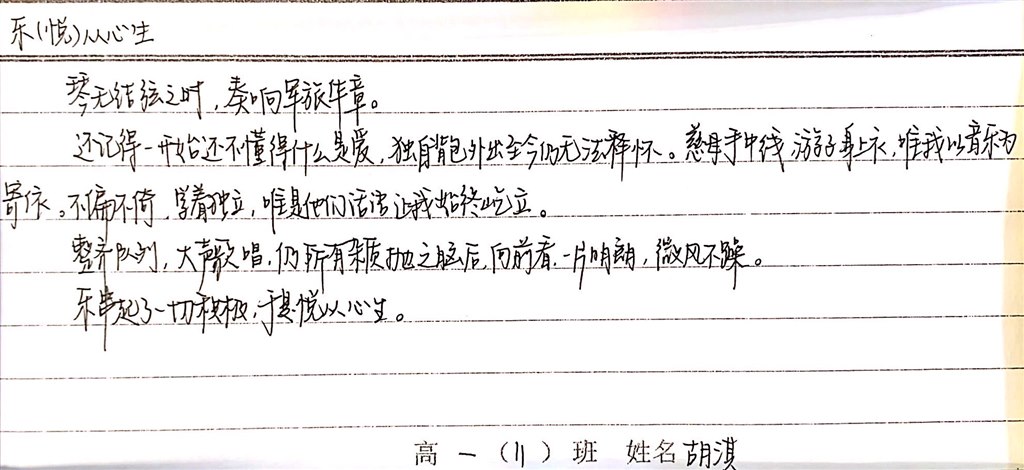 乐(悦)从心生
琴无结弦之时,奏响军旅华章。
还记得一开始还不懂得什么是爱,独自背包外出至今仍无法释怀。慈母手中线,游子身上衣,唯我以音乐为
寄依。不偏不倚,学着独立,唯是他们活法让我始终屹立。
整齐队列,大声歌唱,仍所有杂质抛之脑后,向前看,一片明朗,微风不躁。
乐串起了一切积极,于是悦从心生。
高一(11)班 姓名 胡淇